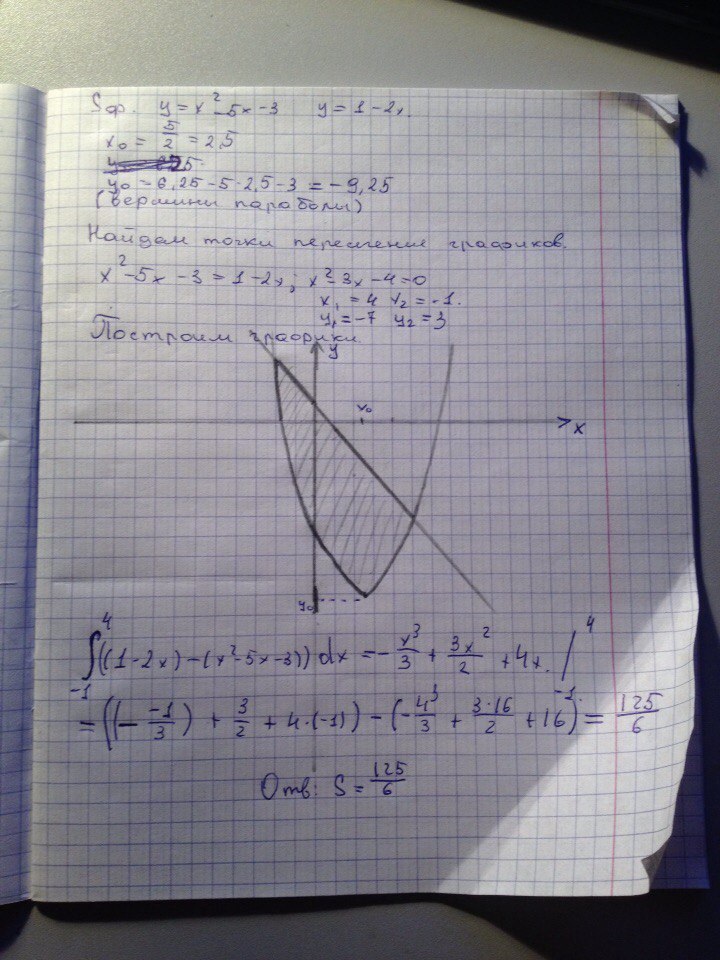 Sф. y = x² - 5x - 3 y = 1 - 2x.
x₀ = 5/2 = 2,5
y₀ = 6,25 - 5 · 2,5 - 3 = - 9,25
(вершины параболы)
Найдем точки пересечение графиков.
x² - 5x - 3 = 1 - 2x; x² - 3x - 4 = 0
x₁ = 4 x₂ = -1.
y₁ = -7 y₂ = 3
Построим графики.
y
x₀
x
y₀
∫₋₁⁴ ((1 - 2x) - (x² - 5x - 3)) dx = - x³/3 + 3x²/2 + 4x. |₋₁⁴
= ((- -1/3) + 3/2 + 4 · (-1)) - (- 4³/3 + 3·16/2 + 16) = 125/6
Отв: S = 125/6